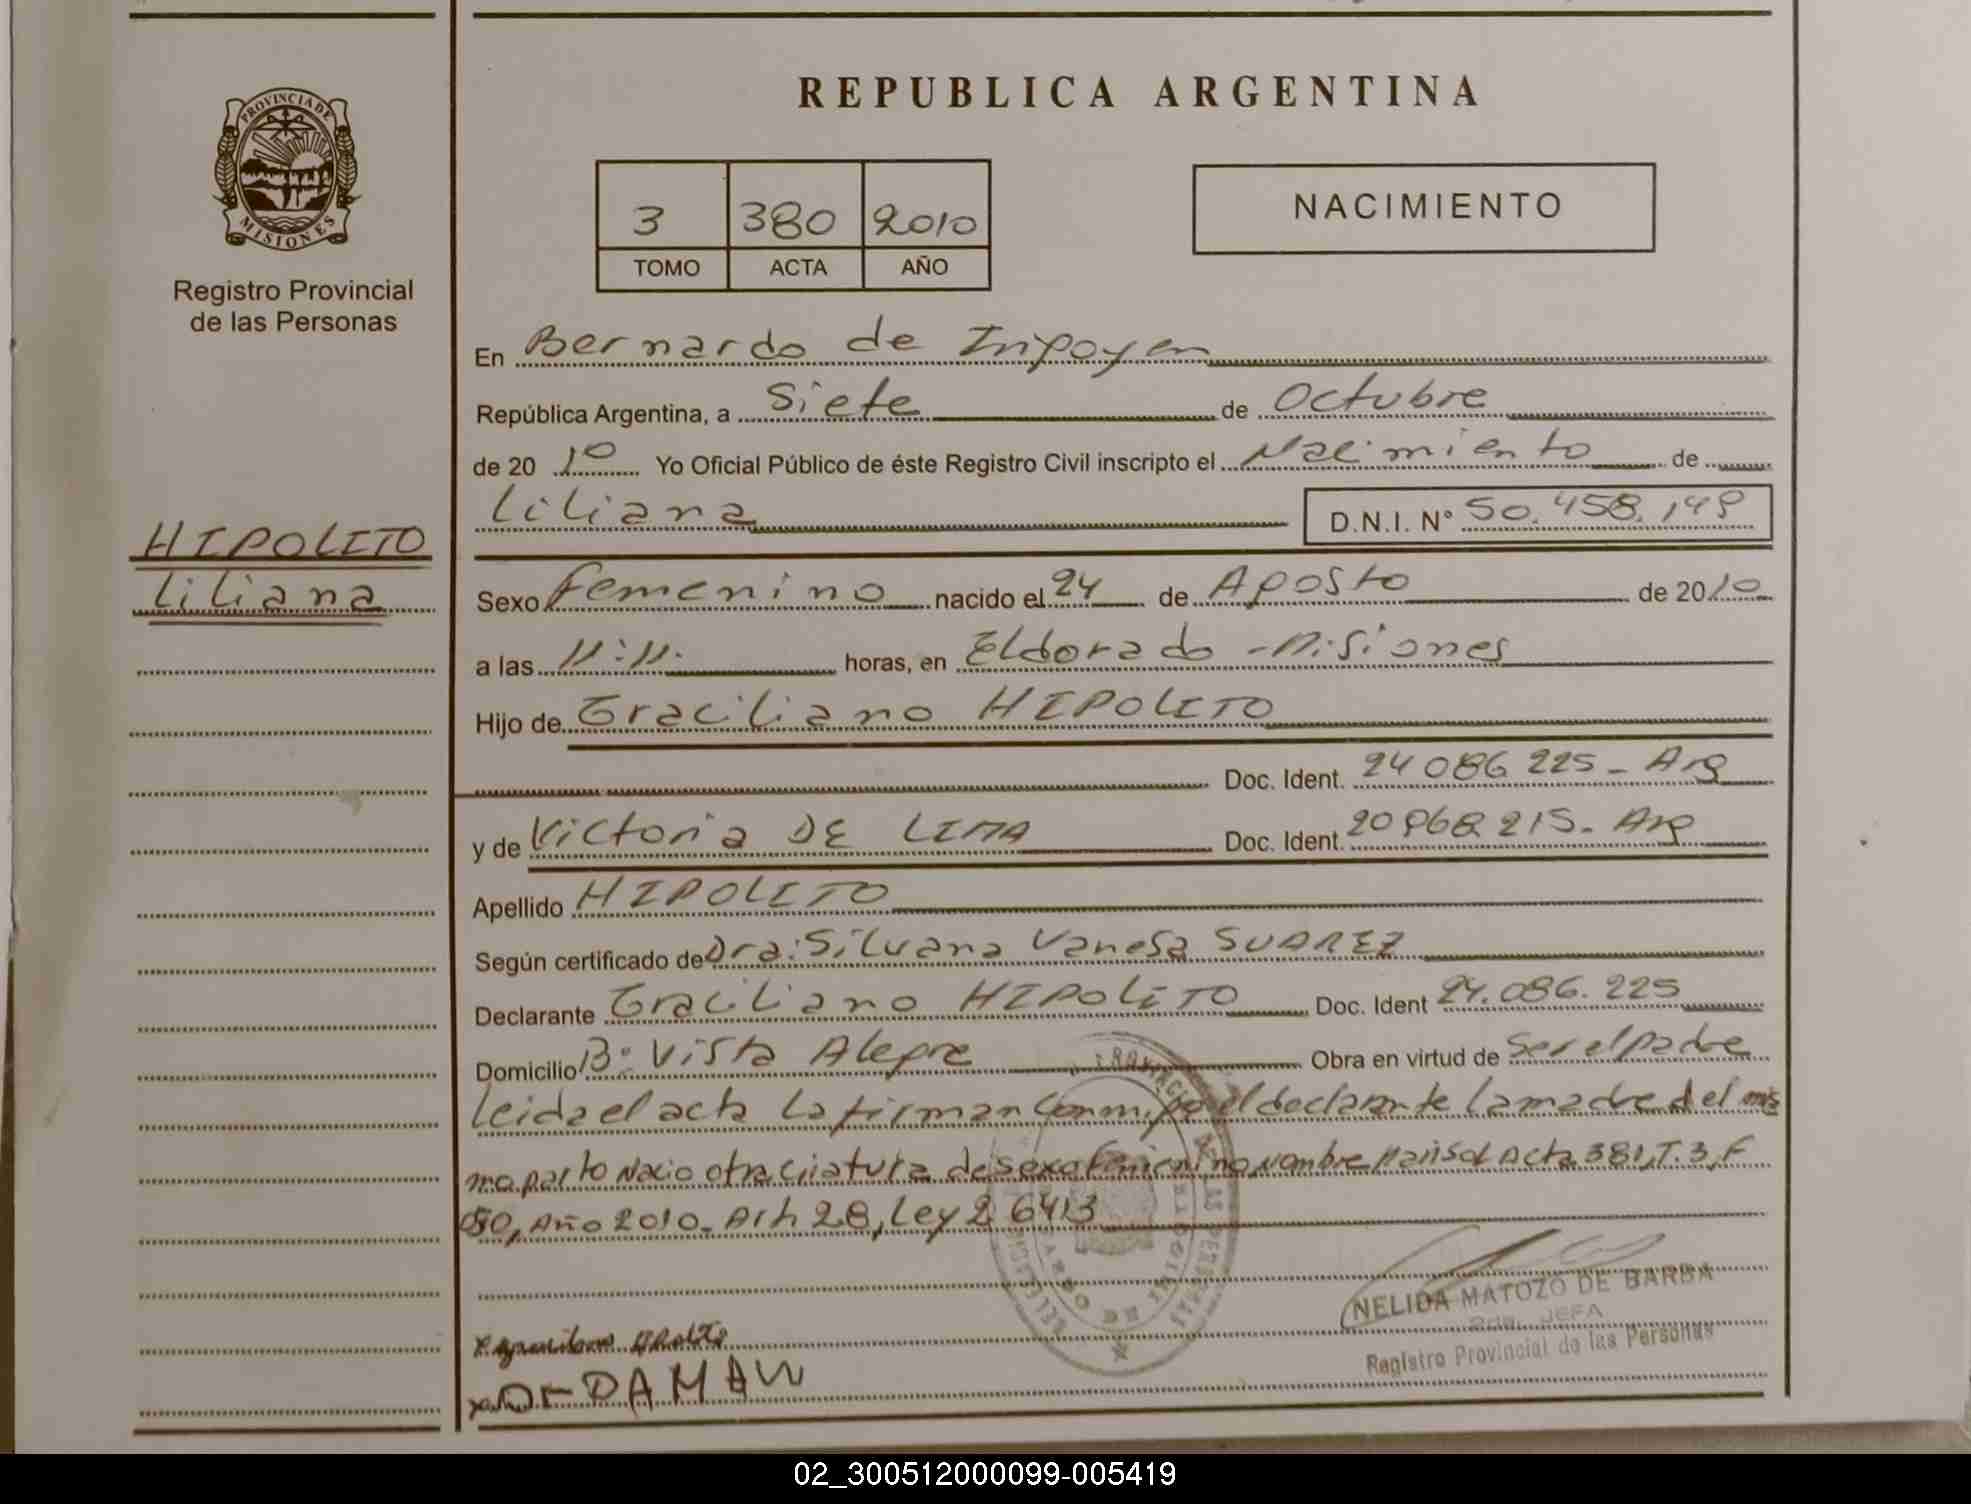 REPUBLICA ARGENTINA
PROVINCIA DE
MISIONES
Registro Provincial
de las Personas
3 380 2010
TOMO ACTA AÑO
NACIMIENTO
En Bernardo de Irigoyen
República Argentina, a Siete de Octubre
de 20 10 Yo Oficial Público de éste Registro Civil inscripto el Nacimiento de
Liliana D.N.I. N° 50.458.149
HIPOLITO
Liliana
Sexo Femenino nacido el 24 de Agosto de 2010
a las 11:11. horas, en Eldorado - Misiones
Hijo de Graciliano HIPOLITO
Doc. Ident. 24 086 225 - Arg
y de Victoria DE LIMA Doc. Ident. 20 968 215 - Arg
Apellido HIPOLITO
Según certificado de Dra: Silvana Vanesa SUAREZ
Declarante Graciliano HIPOLITO Doc. Ident 24.086.225
Domicilio B: Vista Alegre Obra en virtud de Ser el padre
Leida el acta La firman Conmigo el declarante la madre del mis
mo parto Nacio otra criatura de sexo femenino nombre Marisol Acta 381, T.3, F
, Año 2010. Art 28, Ley 26413
NELIDA MATOZO DE BARBA
2da. JEFA
Registro Provincial de las Personas
02_300512000099-005419